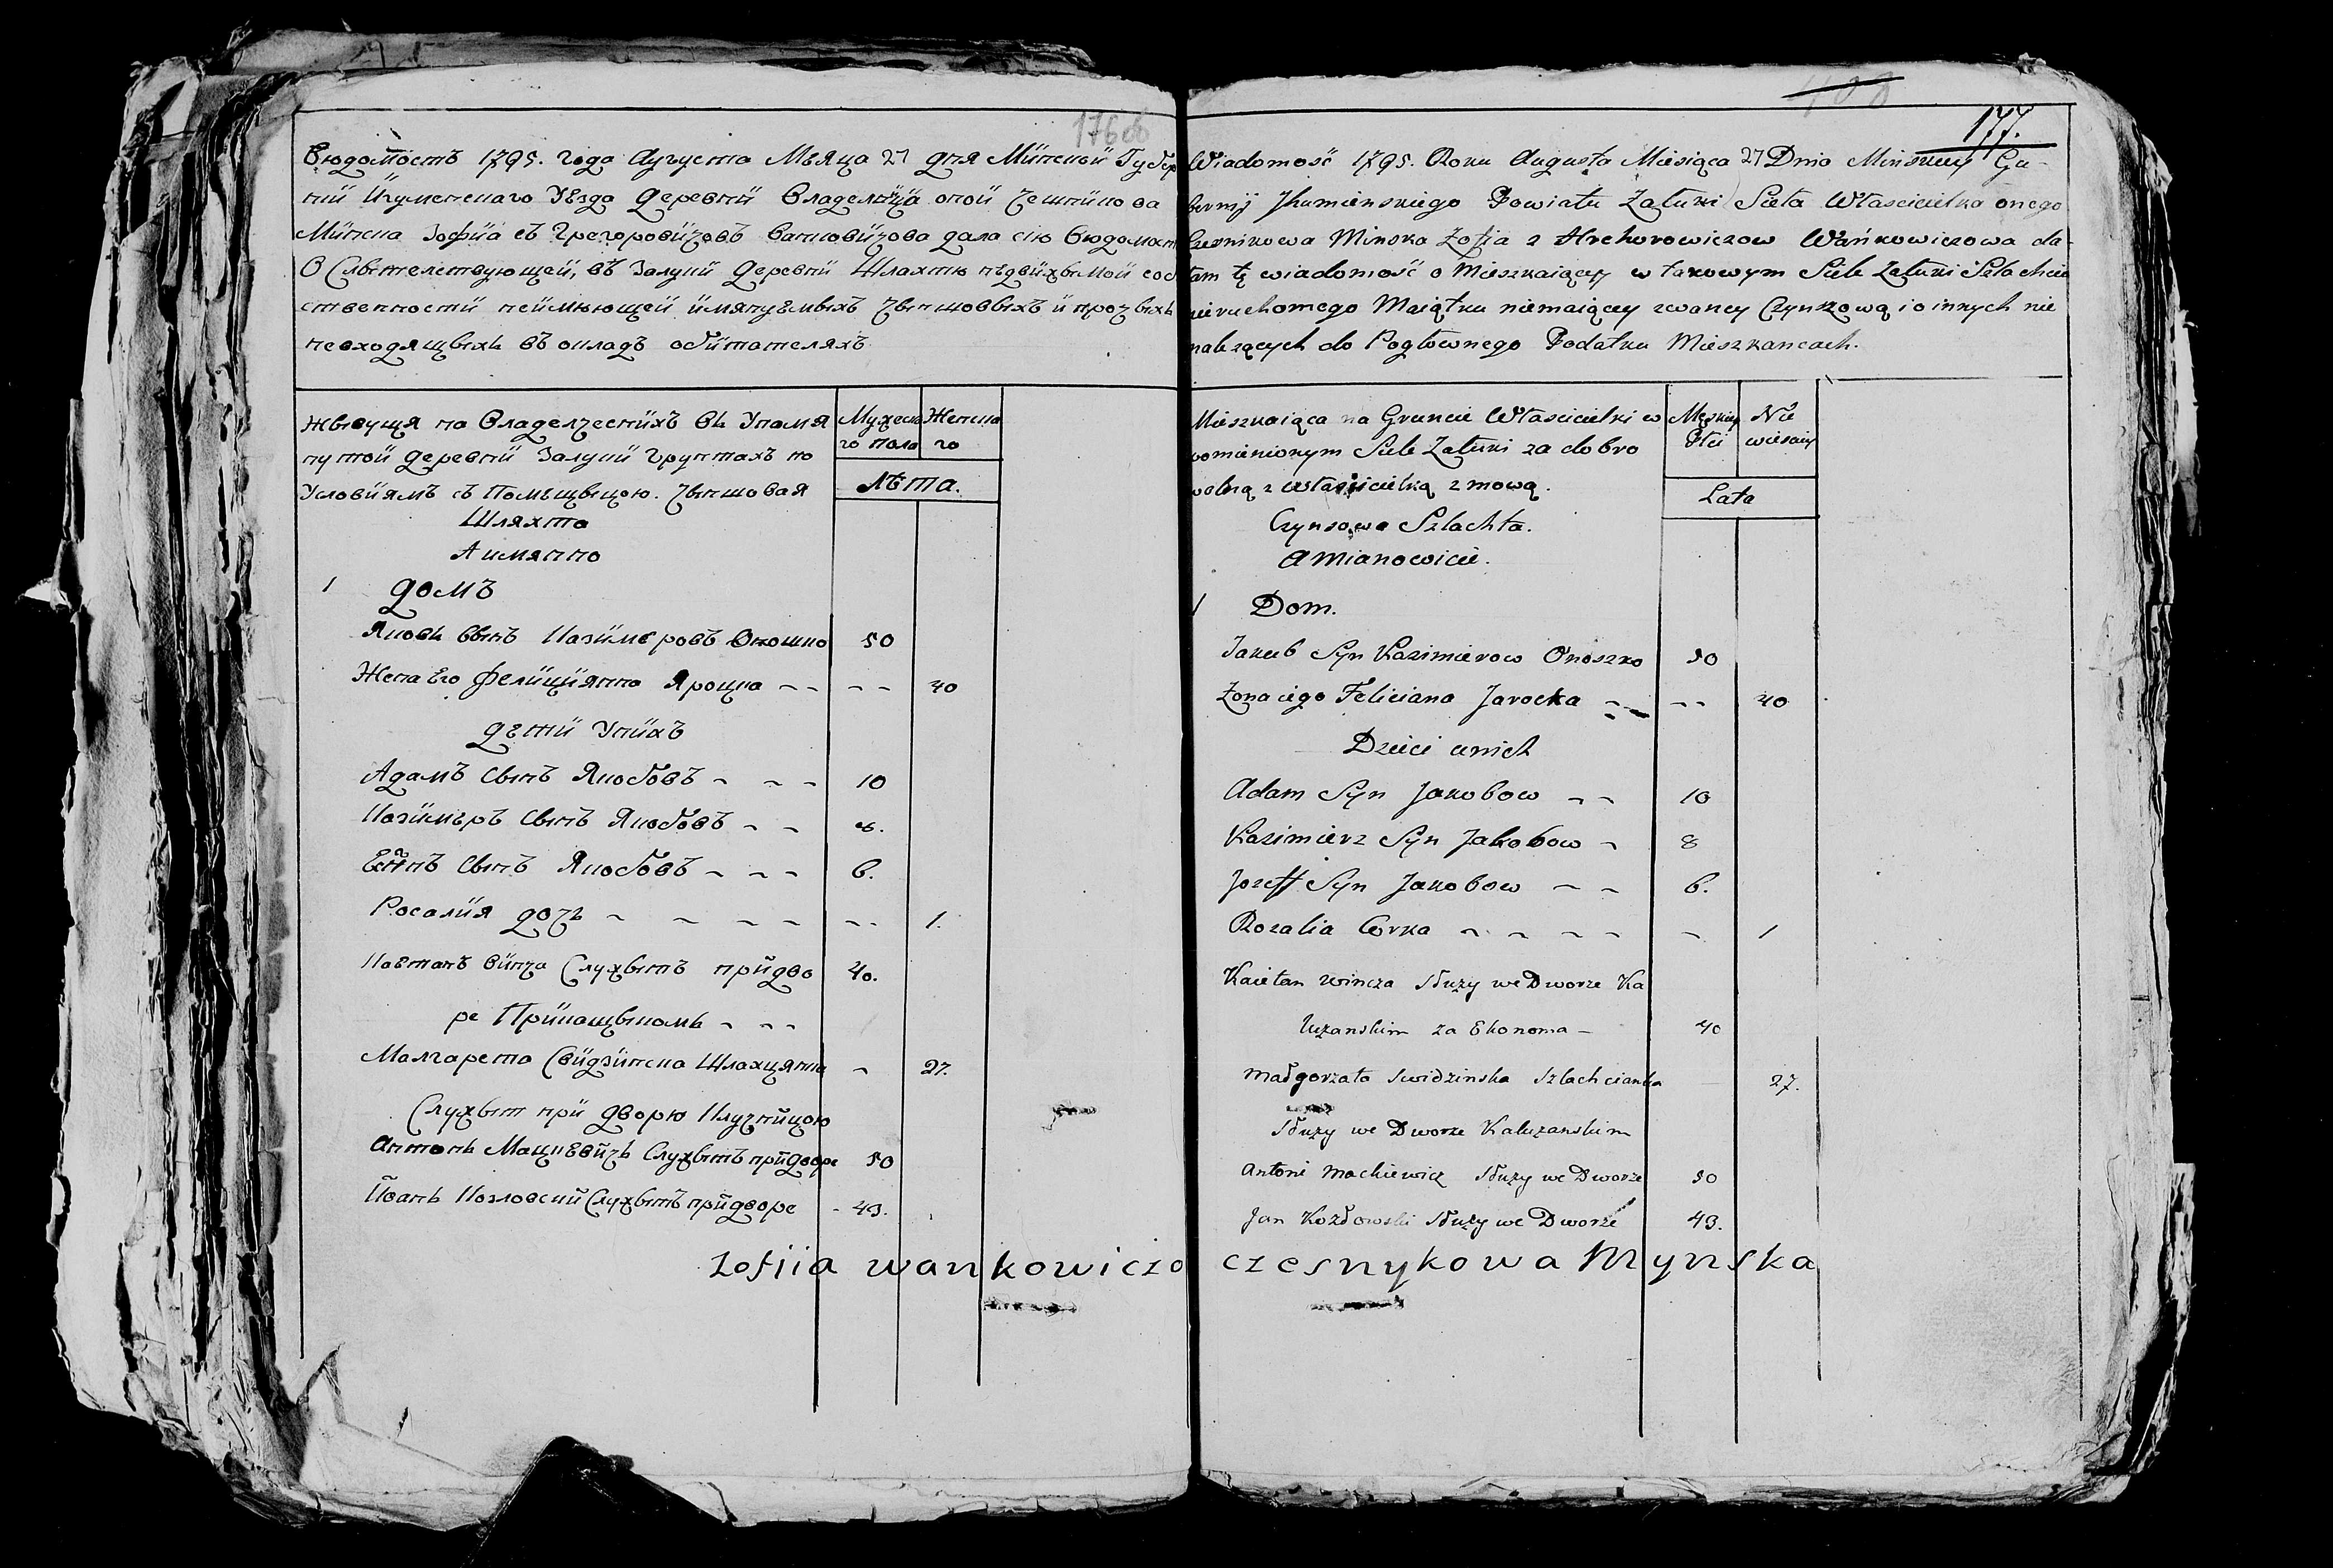 176об
Вюдомость 1795. года Аугуста Мъяца 27 дня Минской Губер
нии Игуменского Уѣзда деревни Владелица оной Чешникова
Минска Зофиа съ Грегоровичовъ Ванковичова дала сию Вюдомаст
О Свытелствующей, въ Залуки деревни Шлахты недвижымой соб
ственности неимеющей имянуемыхъ Чыншовыхъ и прочыхъ
невходящыхъ въ окладъ обитателяхъ
Жывущя на Владелческихъ въ Упамя
нутой деревни Залуки грунтахъ по
Условиямъ съ Помещыцою. Чыншовая
Шляхта
Аимянно
Мужска
го пола
Женска
го
Лѣта.
1 Домъ
Яковъ Сынъ Казимеровъ Оношко 50
Жена Его Фелицыянна Яроцка -- -- 40
Дети Униχъ
Адамъ Сынъ Якобовъ - - - 10
Казимеръ Сынъ Якобовъ - - 8.
Сынъ Якобовъ - - - 6.
Росалия дочь - - - - -- 1.
Каетанъ Винча Служытъ придво 40.
ре Прикащыкомъ - - -
Малгарета Свидзинска Шлахцянка - 27.
Служыт при дворю Ключницою
Антонь Мацкевичь Служытъ придворе 50
Иоань Козловский Служытъ придворе - 43.
177.
Wiadomość 1795. Roku Augusta Miesiąca 27 Dnia Minskiey Gu-
bernij Jhumienskiego Powiatu Załuki Sieła Własciciełka onego
Czesnikowa Minska Zofia z Hrehorowiczow Wańkowiczowa da-
łam tę wiadomość o Mieszkaiącey w takowym Siele Załuki Szlachcie
nieruchomego Maiątku niemaiącey zwaney Czynszową i o innych nie
należących do Pogłównego Podatku Mieszkancach.
Mieszkaiąca na Gruncie Własciciełki w
pomienionym Siele Załuki za dobro
wolną z własciciełką zmową.
Czynsowa Szlachta.
a Mianowicie.
Męskiey
Płci
Nie
wiesciey
Lata
1 Dom.
Jakub Syn Kazimierow Onoszko 50
Żona iego Feliciana Jarocka -- -- 40
Dzieci u nich
Adam Syn Jakobow -- 10
Kazimierz Syn Jakobow - 8
Jozeff Syn Jakobow -- 6.
Rozalia Corka - - - - - 1
Kaietan Wincza Służy we Dworze Ka
łużanskim za Ekonoma - 40
Małgorzata Swidzinska Szlachcianka 27.
Służy we Dworze Kałużanskim
Antoni Mackiewicz Służy we Dworze 50
Jan Kozłowski Służy we Dworze 43.
Zofiia wankowiczo czesnykowa Mynska